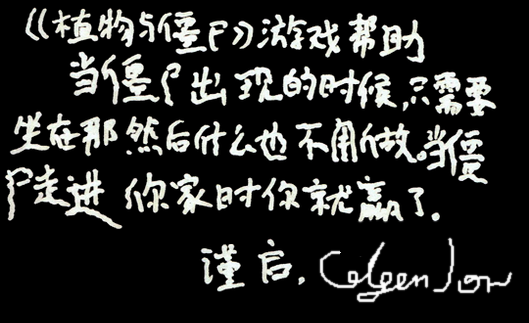 《植物与僵尸》游戏帮助
当僵尸出现的时候,只需要
坐在那然后什么也不用做。当僵
尸走进你家时你就赢了。
谨启,